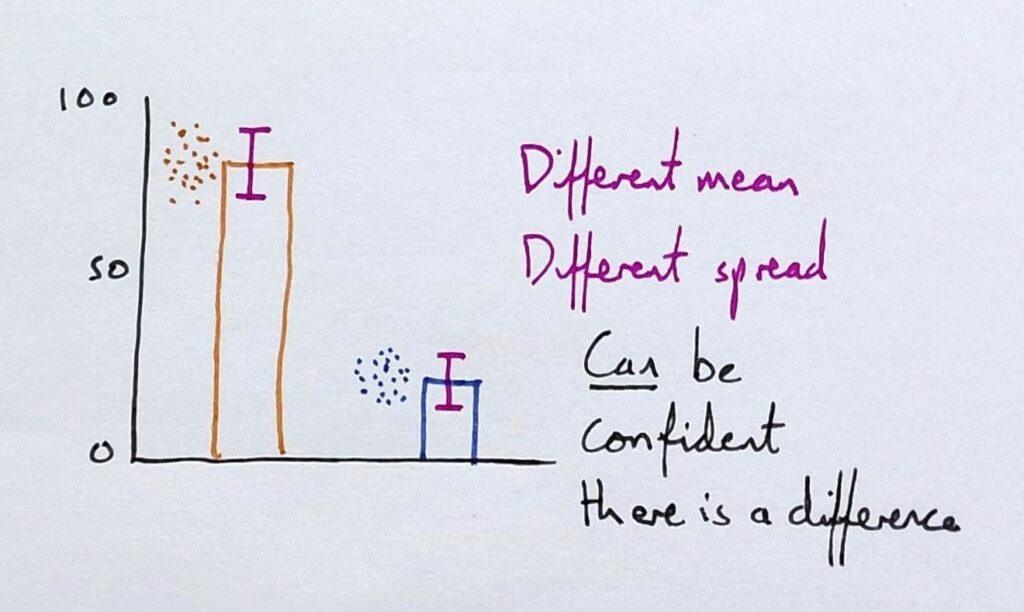 100
50
0
Different mean
Different spread
Can be
confident
there is a difference